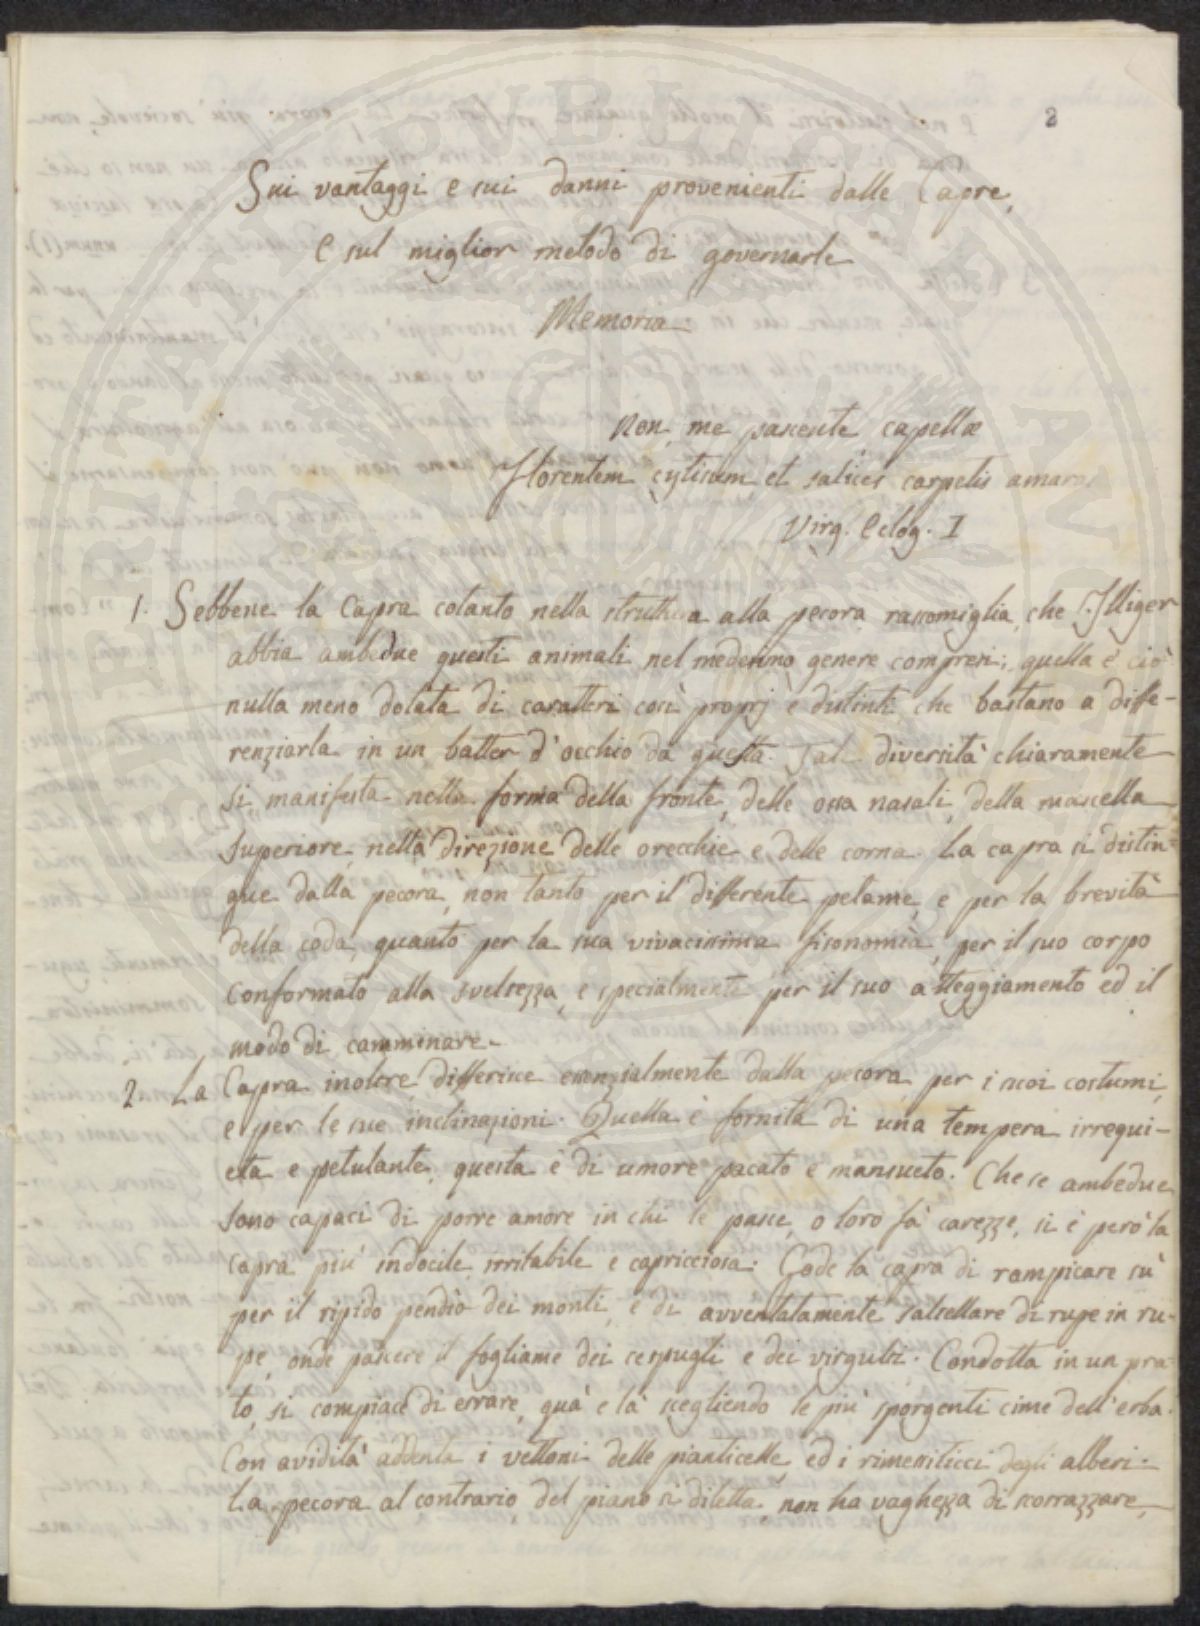 2
Sui vantaggi e sui danni provenienti dalle Capre,
e sul miglior metodo di governarle
Memoria
Non, me pascente, capellæ
Florentem cytisum, et salices carpetis amaras
Virg. Eclog. I
1. Sebbene la Capra cotanto nella struttura alla pecora rassomiglia, che l'Illiger
abbia ambedue questi animali nel medesimo genere compresi; quella è ciò
nulla meno dotata di caratteri così proprj e distinti che bastano a diffe-
renziarla in un batter d'occhio da questa. Tale diversità chiaramente
si manifesta nella forma della fronte, delle ossa nasali, della mascella
superiore, nella direzione delle orecchie e delle corna. La capra si distin=
gue dalla pecora, non tanto per il differente pelame, e per la brevità
della coda, quanto per la sua vivacissima fisonomia, per il suo corpo
conformato alla sveltezza, e specialmente per il suo atteggiamento ed il
modo di camminare.
2. La Capra inoltre differisce essenzialmente dalla pecora per i suoi costumi,
e per le sue inclinazioni. Quella è fornita di una tempera irrequi-
eta e petulante, questa è di umore pacato e mansueto. Che se ambedue
sono capaci di porre amore in chi le pasce, o loro fà carezze, si è però la
capra più indocile, irritabile e capricciosa. Gode la capra di rampicare sù
per il ripido pendio dei monti, e di avventatamente saltellare di rupe in ru-
pe, onde pascere il fogliame dei cespugli e dei virgulti. Condotta in un pra-
to, si compiace di errare, quà e là scegliendo le più sporgenti cime dell'erba.
Con avidità addenta i vettoni delle pianticelle, ed i rimessiticci degli alberi.
La pecora al contrario del piano si diletta, non ha vaghezza di scorrazzare,